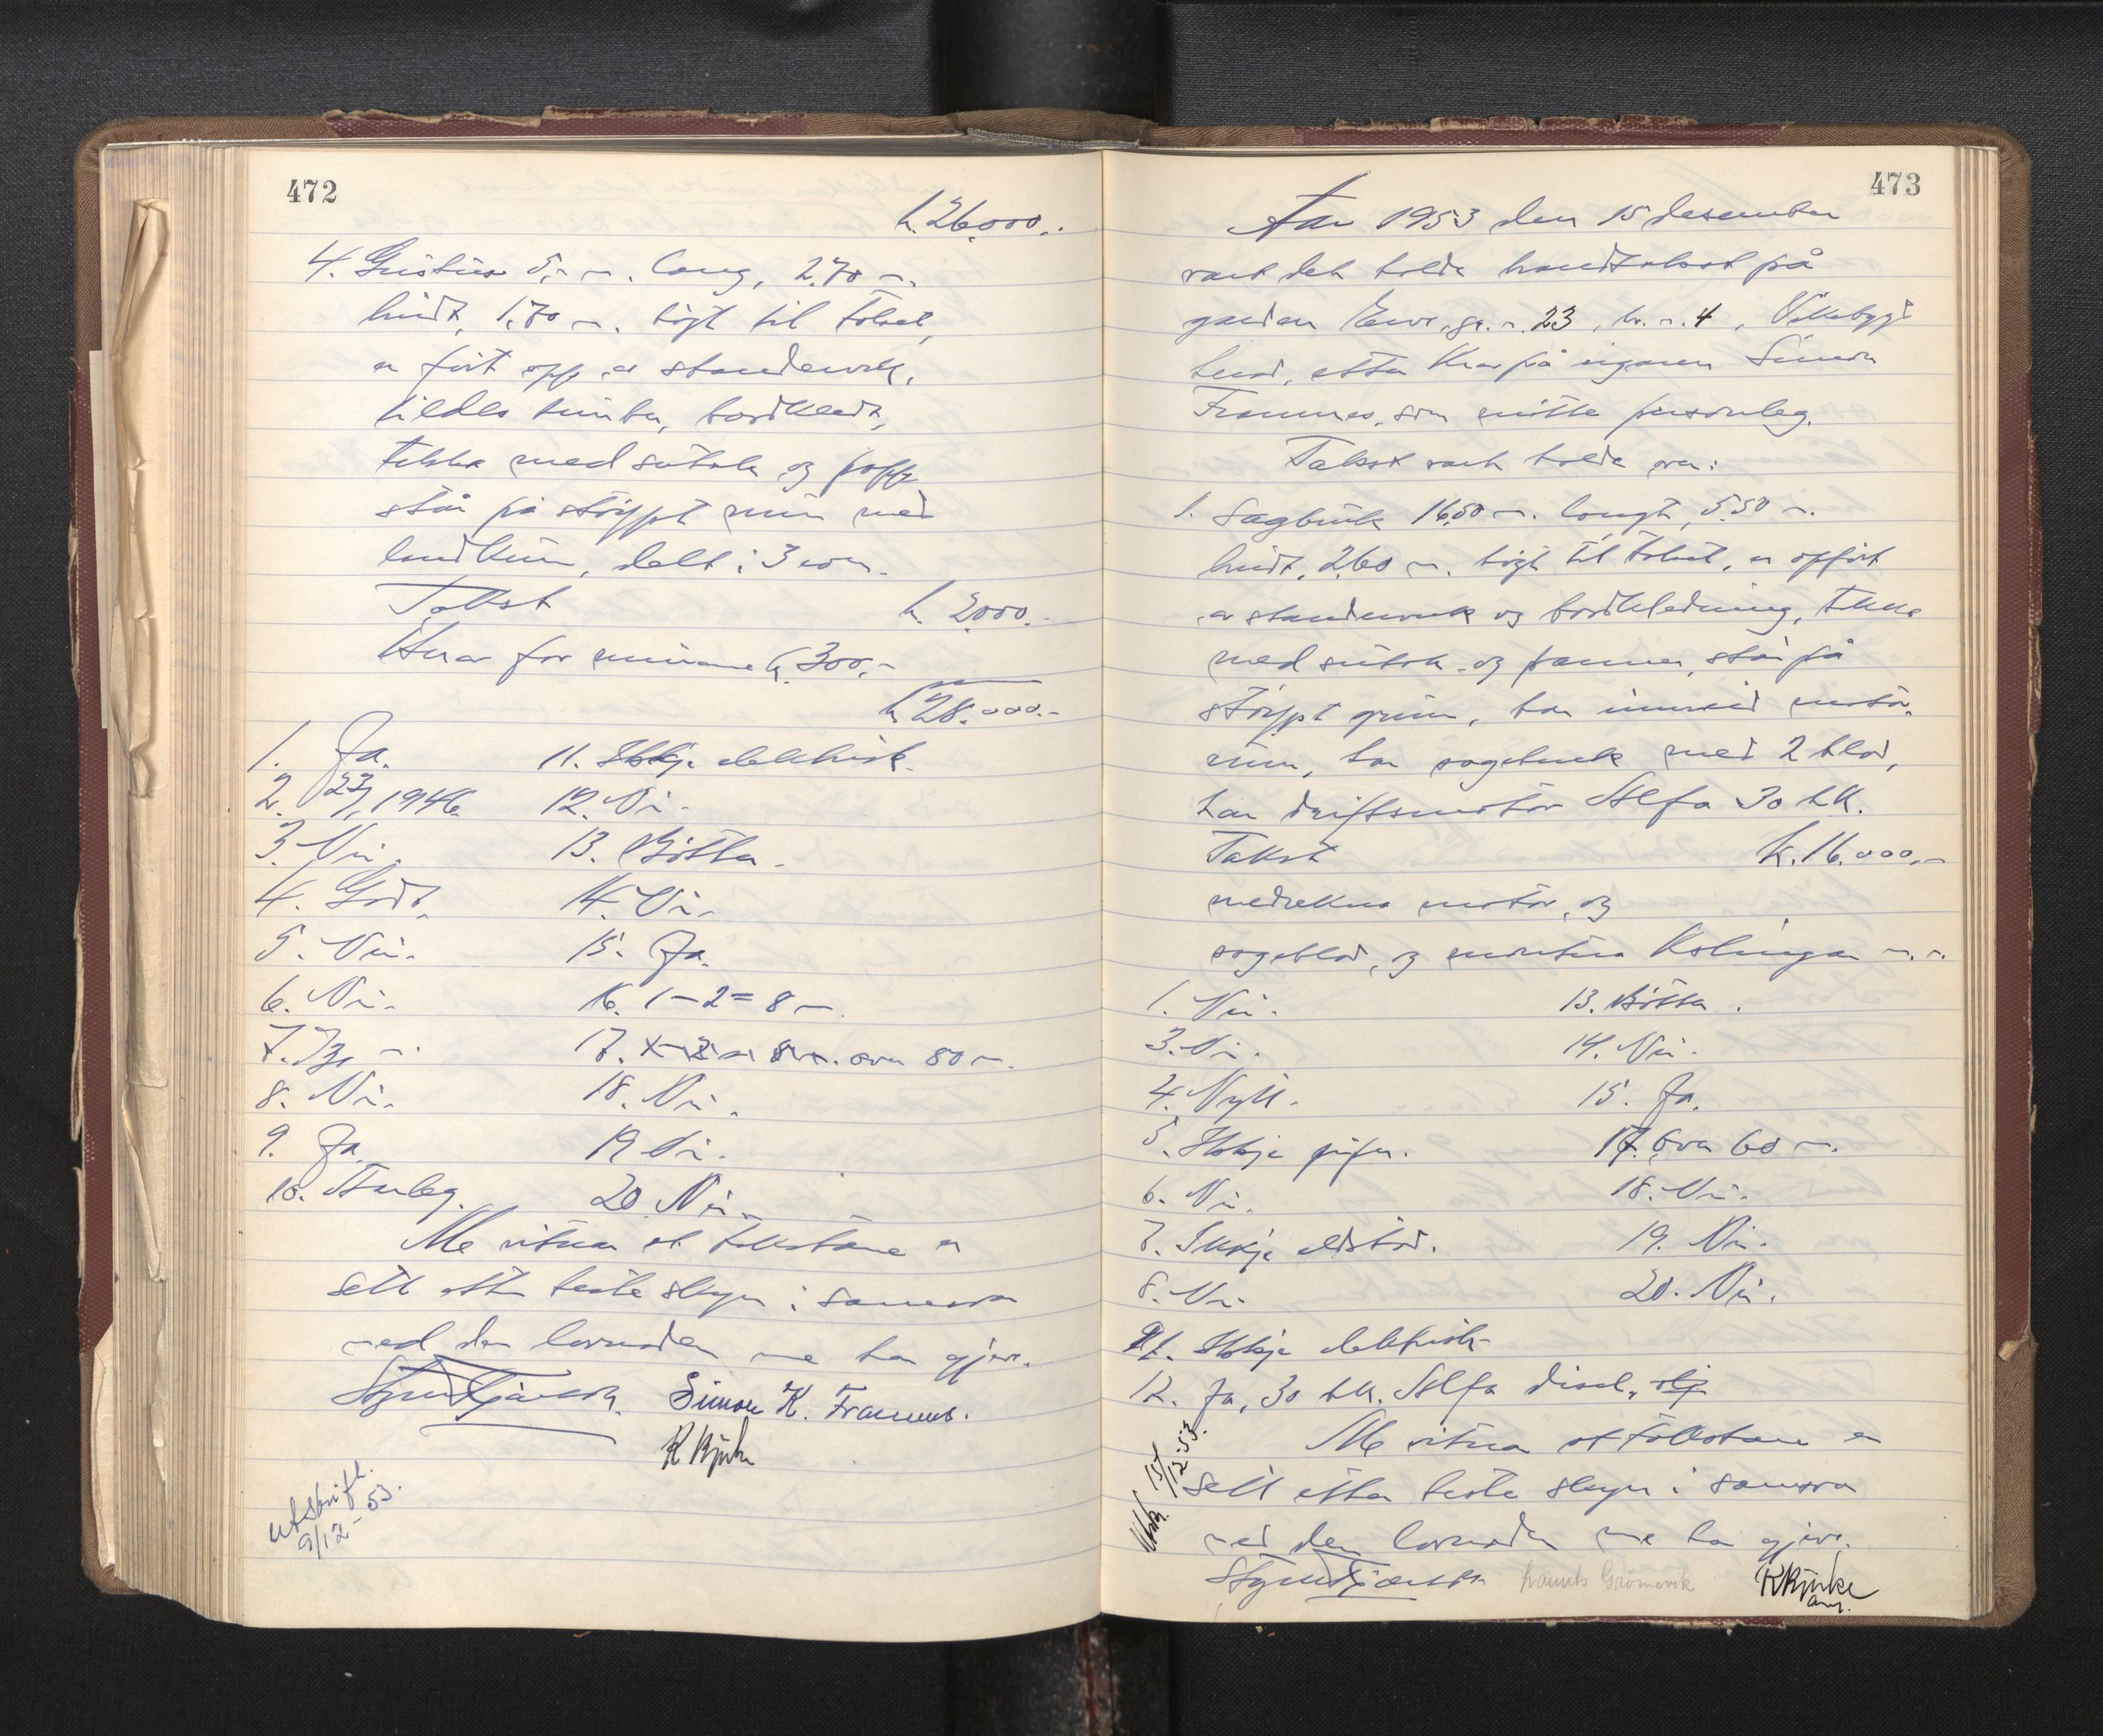 472
k. 26.000.-
4. Grisehus 5,- m. lang, 2.70 m.
breidt, 1.70 m. högt til toket,
er ført opp av standerverk,
kledt bordkledt,
tekka med sutak og papp
står på støypt mur med
landkum, delt i 3 rom.
Takst k. 2.000.-
Herav for murane k. 300,-
k. 28.000.-
1. Ja. 11. Ikkje elektrisk.
2. 23/1 1946. 12. Nei.
3. Nei. 13. Bøtta.
4. Godt. 14. Nei.
5. Nei. 15. Ja.
6. Nei. 16. 1 - 2 = 8 m.
7. m. 17. over 80 m.
8. Nei. 18. Nei.
9. Ja. 19. Nei.
10. Farleg. 20. Nei.
Me vitnar at takstane er
sett etter beste skjøn i samsvar
med den lovnaden me har gjeve.
Simon K. Framnes.
K Bjørke
Utskrift
9/12-53.
473
Aar 1953 den 15 desember
vart det halde brandtakst på
garden gr. n. 23, br. n. 4,
herad, etter krav på eigaren Simon
Framnes, som møtte personleg.
Takst vart halde over:
1. Sagbruk 16.50 m. langt, 5.50 m.
breidt, 2.60 m. högt til toket, er oppført
av standerverk og bordkledning, tekka
med sutak og panner, står på
støypt grunn, har innreid motor-
rum, har sagebenk med 2 blad,
har driftsmotor Alfa 30 hk.
Takst k. 16.000,-
medrekna motor, og
sageblad, og m.m.
1. Nei. 13. Bøtta.
3. Nei. 14. Nei.
4. Nytt. 15. Ja.
5. Ikkje pipe. 17. Over 60 m.
6. Nei. 18. Nei.
7. Ikkje eldstad. 19. Nei.
8. Nei. 20. Nei.
11. Ikkje elektrisk
12. Ja, 30 hk. Alfa disel
Me vitnar at takstane er
sett etter beste skjøn i samsvar
med den lovnaden me har gjeve.
Hannes Grønevik K Bjørke
Utskr. 15/12-53.